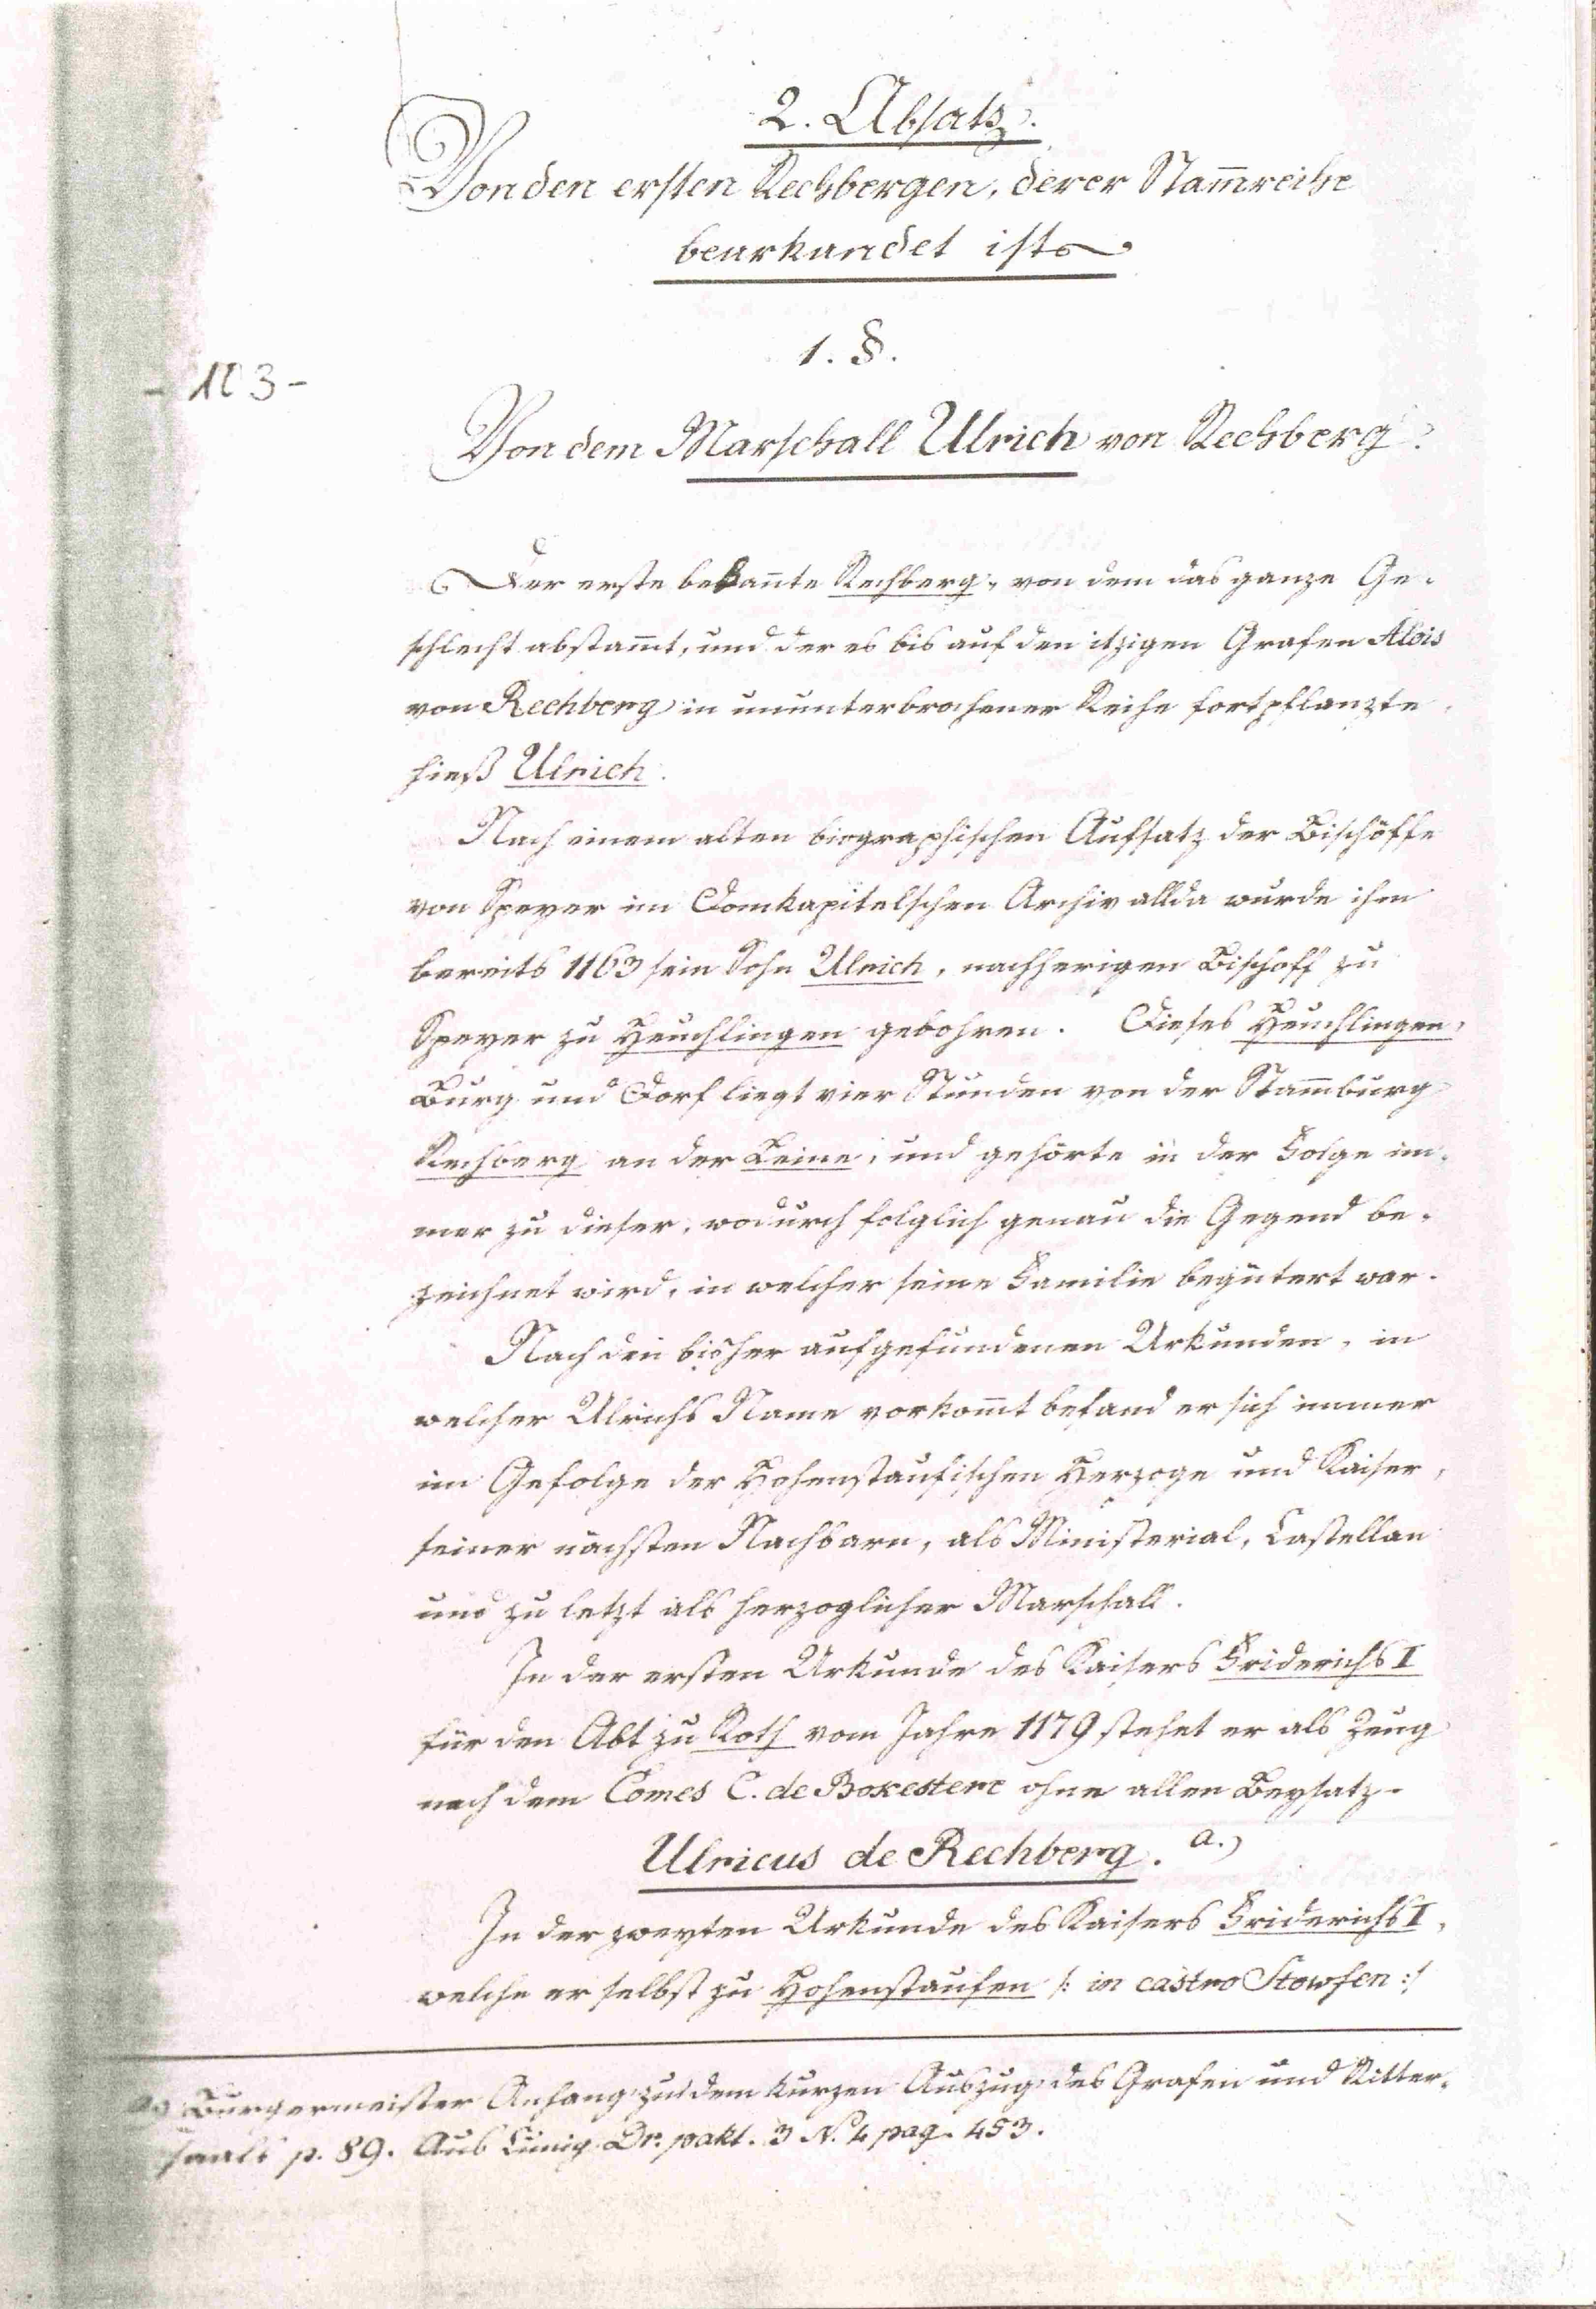 2. Absatz.
Von den ersten Rechbergen, derer Stam̅reihe
beurkundet ist
- 103 -
1. §.
Von dem Marschall Ulrich von Rechberg.
Der erste bekan̅te Rechberg, von dem das ganze Ge-
schlecht abstam̅t, und der es bis auf den itzigen Grafen Alois
von Rechberg in ununterbrochener Reihe fortpflanzte
hieß Ulrich.
Nach einem alten biographischen Aufsatz der Bischöffe
von Speyer im Domkapitelschen Archiv allda wurde ihm
bereits 1163 sein Sohn Ulrich, nachherigen Bischoff zu
Speyer zu Heuchlingen gebohren. Dieses Heuchlingen,
Burg und Dorf liegt vier Stunden von der Stam̅burg
Rechberg an der Leine, und gehörte in der Folge im-
mer zu dieser, wodurch folglich genau die Gegend be-
zeichnet wird, in welcher seine Familie begütert war.
Nach den bisher aufgefundenen Urkunden, in
welcher Ulrichs Name vorkom̅t befand er sich immer
im Gefolge der Hohenstaufischen Herzoge und Kaiser,
seiner nächsten Nachbarn, als Ministerial, Castellan
und zu letzt als herzoglicher Marschall.
In der ersten Urkunde des Kaisers Friderichs I
für den Abt zu Roth vom Jahre 1179 stehet er als Zeug
nach dem Comes C. de Boxestere ohne allen Beysatz.
Ulricus de Rechberg. a.)
In der zweyten Urkunde des Kaisers Friderichs I,
welche er selbst zu Hohenstaufen /: in castro Stowfen :/
a) Burgermeister Anhang zu dem kurzen Auszug des Grafen und Ritter-
saals p. 89. Aus Lünig Dr. pakt. 3 N. 4 pag. 453.